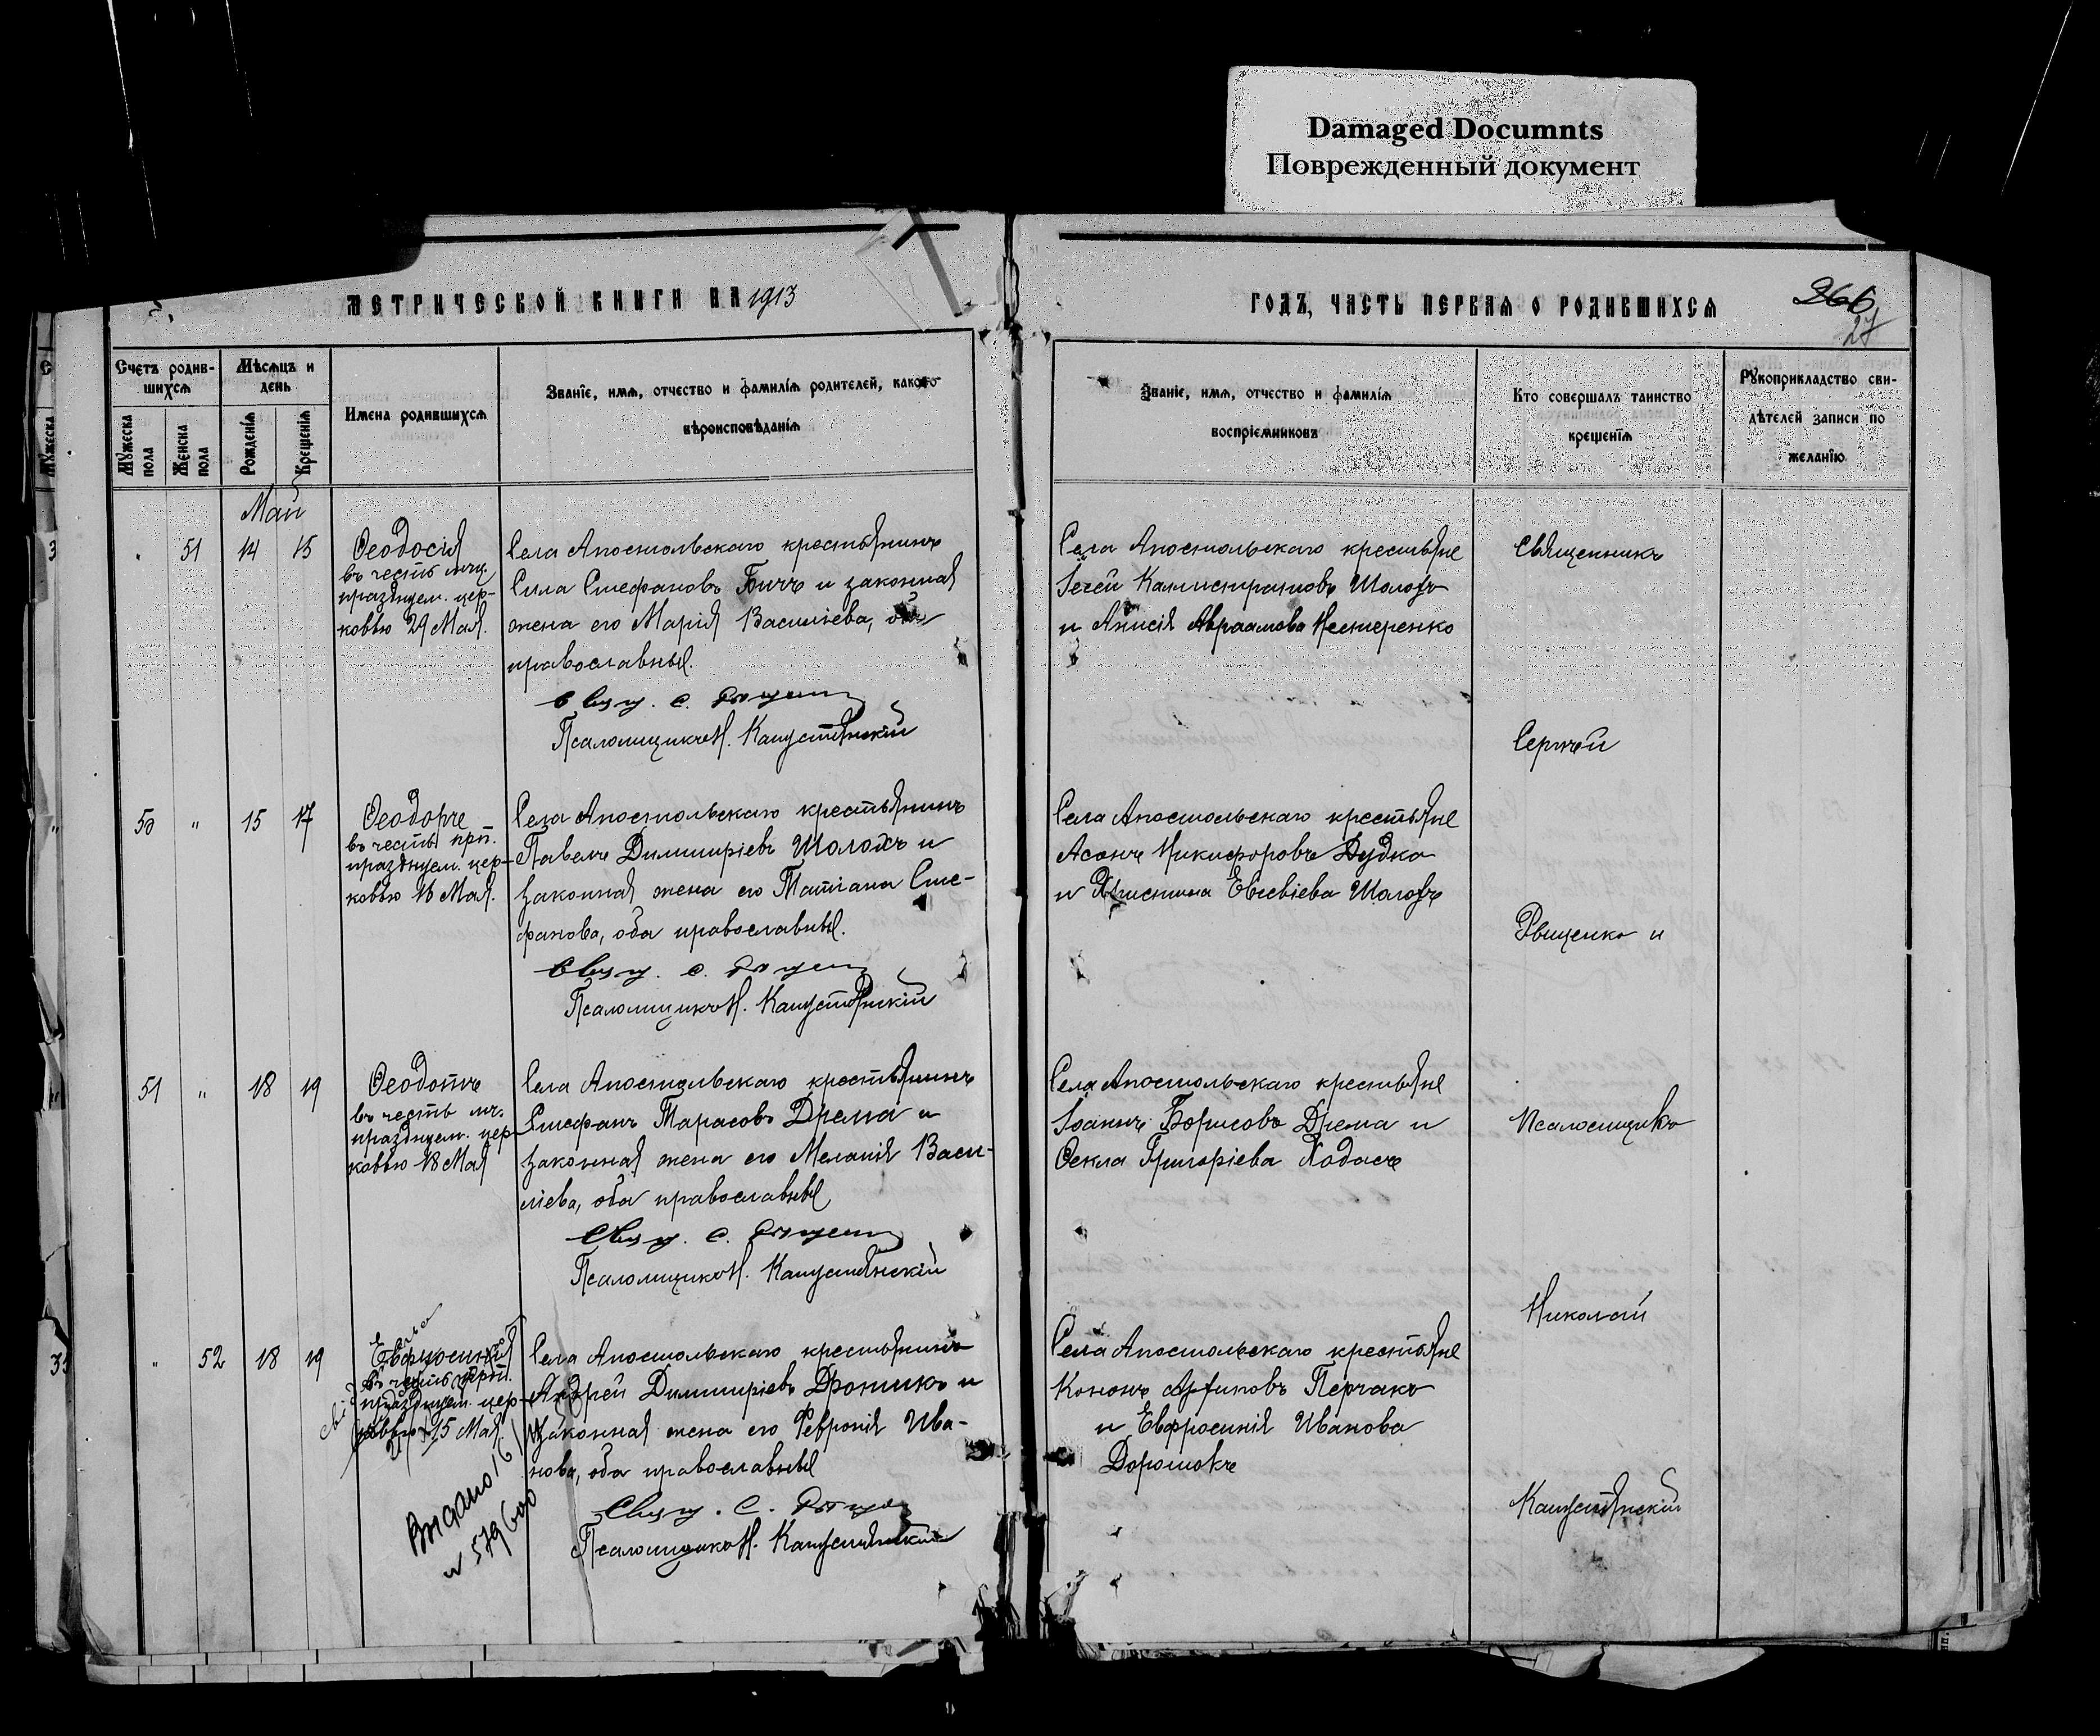 Damaged Documnts
Поврежденный документ
МЕТРИЧЕСКОЙ КНИГИ НА 1913
ГОДЪ, ЧАСТЬ ПЕРВАЯ О РОДИВШИХСЯ
266
27
Счетъ родив-
шихся
Мужеска
пола
Женска
пола
Мѣсяцъ и
день
Рожденія
Крещенія
Имена родившихся
Званіе, имя, отчество и фамилія родителей, какого
вѣроисповѣданія
Званіе, имя, отчество и фамилія
воспріемниковъ
Кто совершалъ таинство
крещенія
Рукоприкладство сви-
дѣтелей записи по
желанію
Май
51 14 15
Ѳеодосія
въ честь мчц.
празднуем. цер-
ковью 29 Мая.
Села Апостольскаго крестьянинъ
Сила Стефановъ Бичъ и законная
жена его Марія Васильева, оба
православные.
Свящ. С.
Псаломщикъ Н. Капустянскій
Села Апостольскаго крестьяне
Каллистратовъ Шолохъ
и Анисія Авраамова Нестеренко
Священникъ
Сергѣй
50 " 15 17
Ѳеодоръ
въ честь прп.
празднуем. цер-
ковью 16 Мая.
Села Апостольскаго крестьянинъ
Павелъ Димитріевъ Шолохъ и
законная жена его Татіана Сте-
фанова, оба православные.
Свящ. С.
Псаломщикъ Н. Капустянскій
Села Апостольскаго крестьяне
Никифоровъ Дудка
и Христина Евсевіева Шолохъ
и
51 " 18 19
Ѳеодотъ
въ честь мч.
празднуем. цер-
ковью 18 Мая
Села Апостольскаго крестьянинъ
Стефанъ Тарасовъ Дрема и
законная жена его Меланія Васи-
ліева, оба православные
Свящ. С.
Псаломщикъ Н. Капустянскій
Села Апостольскаго крестьяне
Іоаннъ Борисовъ Дрема и
Ѳекла Григоріева Ходасъ
Псаломщикъ
Николай
" 52 18 19
Евфросинія
въ честь прп.
празднуем. цер-
ковью 15 Мая.
Выдано 16
579600
Села Апостольскаго крестьянинъ
Андрей Димитріевъ Дроникъ и
законная жена его Февронія Ива-
нова, оба православные
Свящ. С.
Псаломщикъ Н. Капустянскій
Села Апостольскаго крестьяне
Кононъ Перчакъ
и Евфросинія Иванова
Дорошокъ
Капустянскій